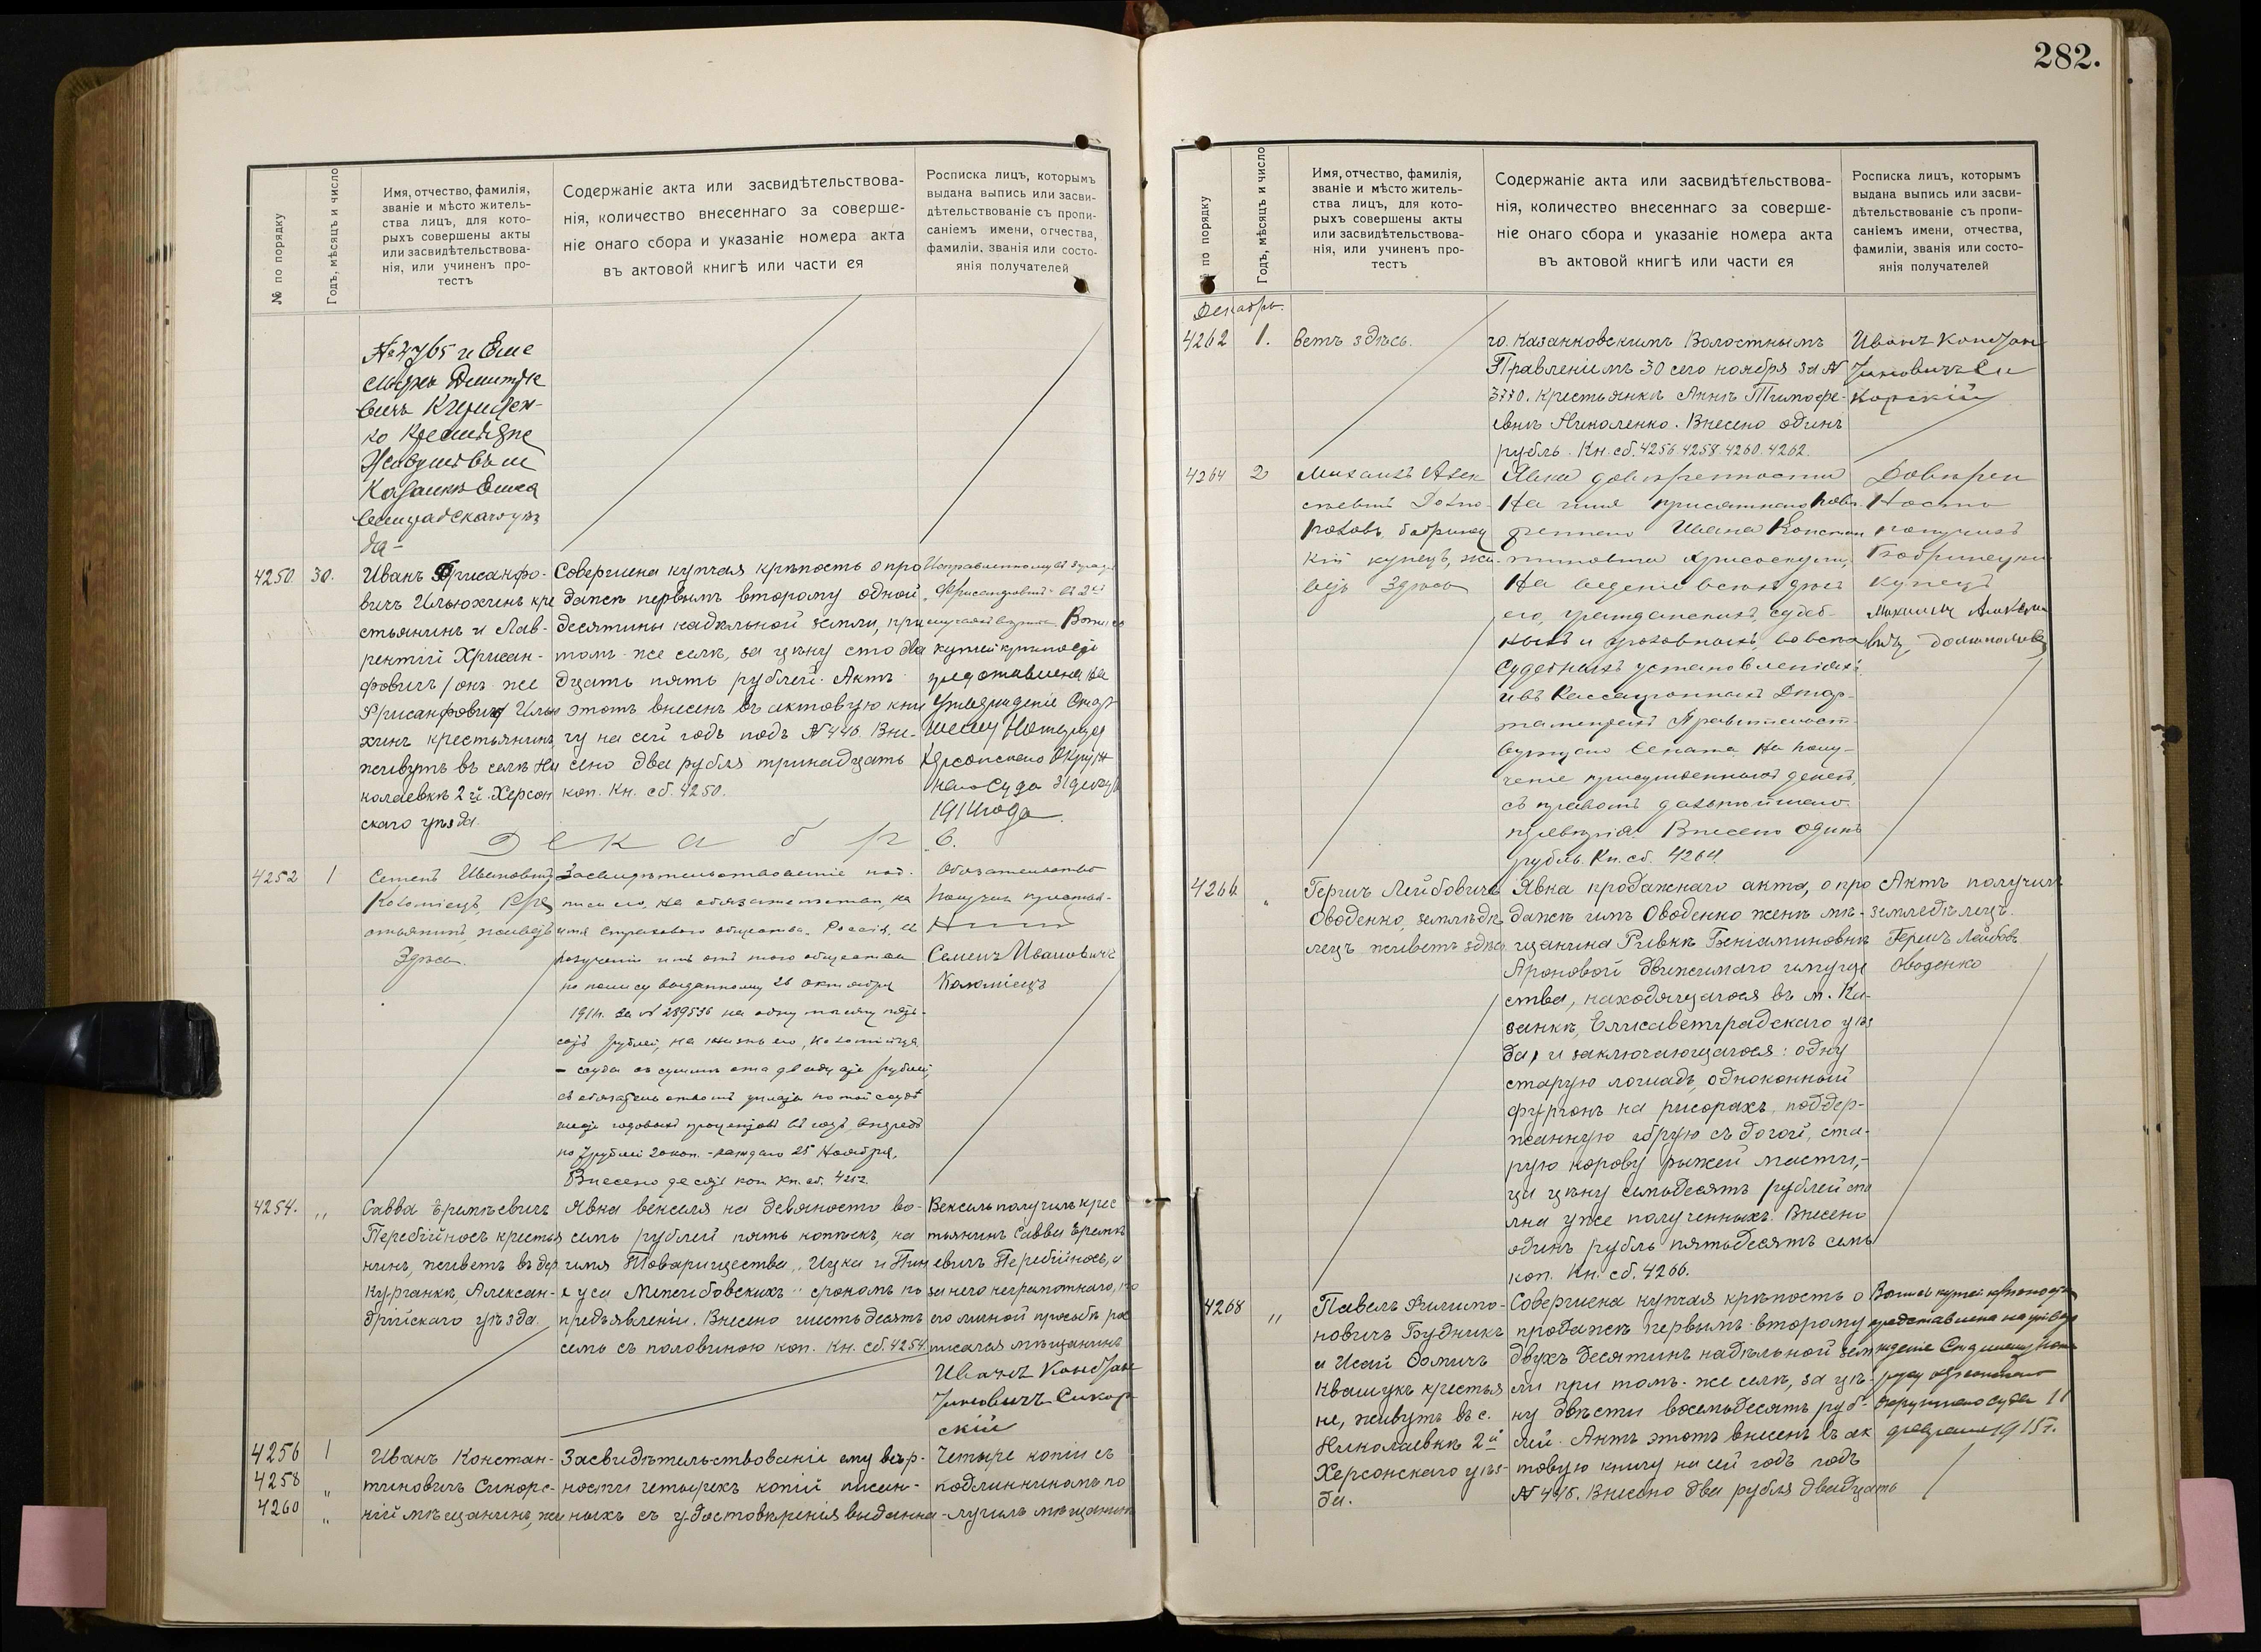 282.
№ по порядку
Годъ, мѣсяцъ и число
Имя, отчество, фамилія,
званіе и мѣсто житель-
ства лицъ, для кото-
рыхъ совершены акты
или засвидѣтельствова-
нія, или учиненъ про-
тестъ
Содержаніе акта или засвидѣтельствова-
нія, количество внесеннаго за соверше-
ніе онаго сбора и указаніе номера акта
въ актовой книгѣ или части ея
Росписка лицъ, которымъ
выдана выпись или засви-
дѣтельствованіе съ пропи-
саніемъ имени, отчества,
фамиліи, званія или состо-
янія получателей
ко крестьяне
да-
4250
30.
вичъ Ильюхинъ кре
стьянинъ и Лав-
рентій Хрисан-
фовичъ / онъ же
Фрисанфовичъ Илью
хинъ крестьянинъ
живутъ въ селѣ Ни
колаевкѣ 2й. Херсон
скаго уѣзда.
Совершена купчая крѣпость о про
дажѣ первымъ второму одной
десятины надѣльной земли, при
томъ-же селѣ, за цѣну сто два
дцать пять рублей. Актъ
этотъ внесенъ въ актовую кни
гу на сей годъ подъ № 440. Вне-
сено два рубля тринадцать
коп. Кн. сб. 4250.
купчей крѣпости
представлена на
утвержденіе Стар
шему Нотаріусу
Херсонскаго Окруж
наго Суда
1914 года.
Декабрь.
4252
1
Семенъ Ивановичъ
Коломіецъ, кре
стьянинъ, живетъ
Здѣсь.
Засвидѣтельствованіе под-
писи его, на обязательствѣ, на
имя Страхового общества "Россія", въ
полученіи имъ отъ того общества
по полису выданному 26 октября
1911г. за № 289536 на одну тысячу пять-
сотъ рублей, на жизнь его, Коломійца
- ссуды въ суммѣ ста двадцати рублей,
по 7 рублей 20 коп. - каждаго 25 Ноября.
Внесено десять коп. Кн. сб. 4252.
Обязательство
Семенъ Ивановичъ
Коломіецъ
4254.
"
Савва Еремѣевичъ
Перебійносъ крестья
нинъ, живетъ въ дер.
Курганкѣ, Алексан-
дрійскаго уѣзда.
Явка векселя на девяносто во-
семь рублей пять копѣекъ, на
имя Товарищества "Ицка и Пин
хуса Межибовскихъ" срокомъ по
предъявленіи. Внесено шестьдесятъ
семь съ половиною коп. Кн. сб. 4254.
Вексель получилъ крес
тьянинъ Савва Еремѣ
евичъ Перебійносъ, а
за него неграмотнаго, по
его личной просьбѣ рас
писался мѣщанинъ
Иванъ Констан
тиновичъ Сикор
скій
4256
1
4258
"
4260
"
Иванъ Констан-
тиновичъ Сикорс-
кій мѣщанинъ, жи
Засвидѣтельствованіе ему вѣр-
ности четырехъ копій писан-
ныхъ съ удостовѣренія выданна-
Четыре копіи съ
подлинникомъ по
лучилъ мѣщанинъ
№ по порядку
Годъ, мѣсяцъ и число
Имя, отчество, фамилія,
званіе и мѣсто житель-
ства лицъ, для кото-
рыхъ совершены акты
или засвидѣтельствова-
нія, или учиненъ про-
тестъ
Содержаніе акта или засвидѣтельствова-
нія, количество внесеннаго за соверше-
ніе онаго сбора и указаніе номера акта
въ актовой книгѣ или части ея
Росписка лицъ, которымъ
выдана выпись или засви-
дѣтельствованіе съ пропи-
саніемъ имени, отчества,
фамиліи, званія или состо-
янія получателей
Декабрь.
4262
1.
ветъ здѣсь.
го Казанковскимъ Волостнымъ
Правленіемъ 30 сего ноября за №
3770. Крестьянкѣ Аннѣ Тимофе-
евнѣ Николенко. Внесено одинъ
рубль. Кн. сб. 4256. 4258. 4260. 4262.
Иванъ Констан
тиновичъ Си
корскій
4264
2
Михаилъ Алек
сѣевичъ Долго
половъ, бобринец
кій купецъ, жи
ветъ Здѣсь
Явка довѣренности
На имя присяжнаго повѣ
реннаго Ивана Констан
На веденіе всѣхъ дѣлъ
его, гражданскихъ, судеб-
ныхъ и уголовныхъ, во всѣхъ
Судебныхъ установленіяхъ
и въ Кассаціонныхъ Депар-
таментахъ Правительст-
вующаго Сената. На полу-
ченіе присужденныхъ денегъ,
съ правомъ дальнѣйшаго
передовѣрія. Внесено одинъ
рубль. Кн. сб. 4264.
Довѣрен
Ность
получилъ
Бобринецкій
купецъ
4266
"
Гершъ Лейбовичъ
Оводенко, земледѣ
лецъ живетъ здѣсь
Явка продажнаго акта, о про
дажѣ имъ Оводенко женѣ мѣ-
щанина Ривкѣ Беніаминовнѣ
Ароновой движимаго имуще
ства, находящагося въ м. Ка-
занкѣ, Елисаветградскаго уѣз
да, и заключающагося: одну
старую лошадь, одноконный
фургонъ на рисорахъ, поддер-
жанную збрую съ дугой, ста-
рую корову рыжей масти,-
за цѣну семьдесятъ рублей спо
лна уже полученныхъ. Внесено
одинъ рубль пятьдесятъ семь
коп. Кн. сб. 4266.
Актъ получилъ
земледѣлецъ.
Гершъ Лейбов.
Оводенко
4268
"
Павелъ Филимо-
новичъ Будникъ
и Исай Фомичъ
Квашукъ крестья
не, живутъ въ с.
Николаевкѣ 2й
Херсонскаго уѣз-
да.
Совершена купчая крѣпость о
продажѣ первымъ-второму
двухъ десятинъ надѣльной зем
ли при томъ-же селѣ, за цѣ-
ну двѣсти восемьдесятъ руб-
лей. Актъ этотъ внесенъ въ ак
товую книгу на сей годъ подъ
Внесено два рубля двадцать
Выпись купчей крѣпости
представлена на утвер
жденіе Старшему Нота
ріусу Херсонскаго
Окружнаго Суда 11
февраля 1915г.